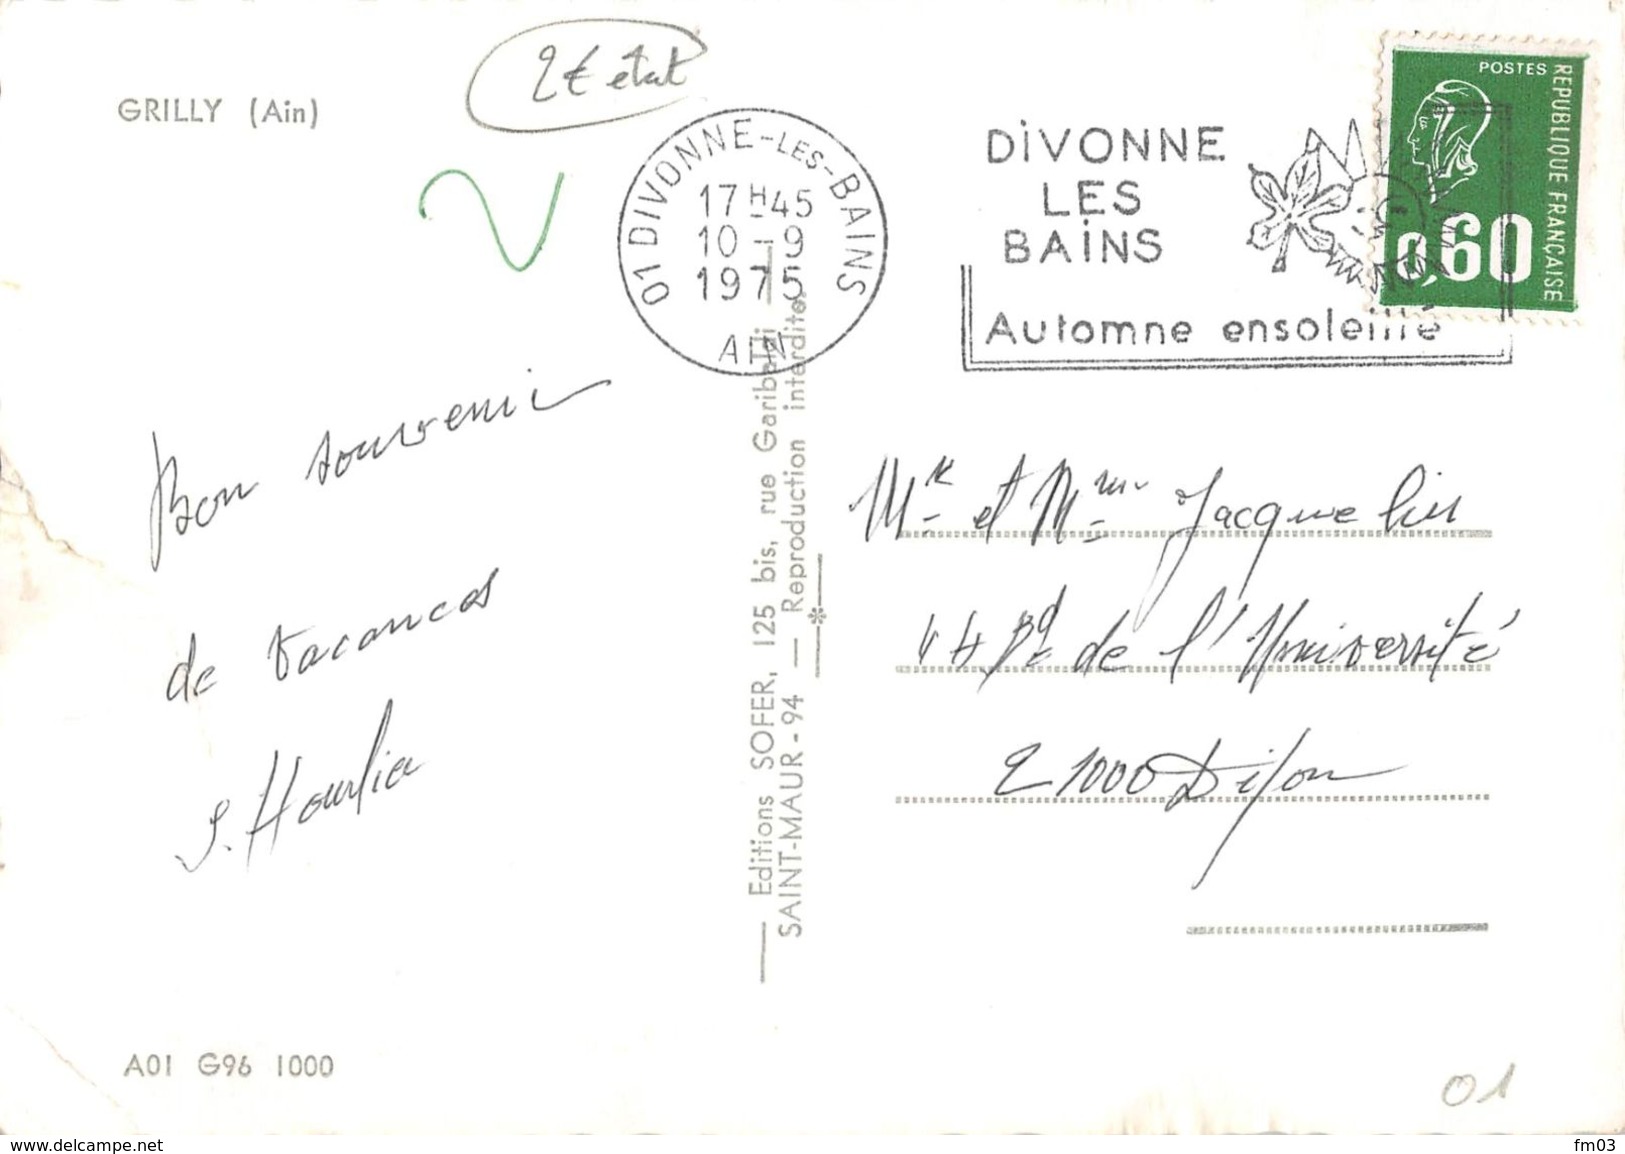 2€ état
GRILLY (Ain)
01 DIVONNE-LES-BAINS
17H45
10-9
1975
AIN
DIVONNE
LES
BAINS
Automne ensoleillé
POSTES
REPUBLIQUE FRANÇAISE
0,60
Bon souvenir
de vacances
Editions SOFER, 125 bis, rue Garibaldi
SAINT-MAUR - 94 — Reproduction interdite.
Mr et Mme Jacquelin
Bd de l'Université
21000 Dijon
A01 G96 1000
01
www.delcampe.net
fm03